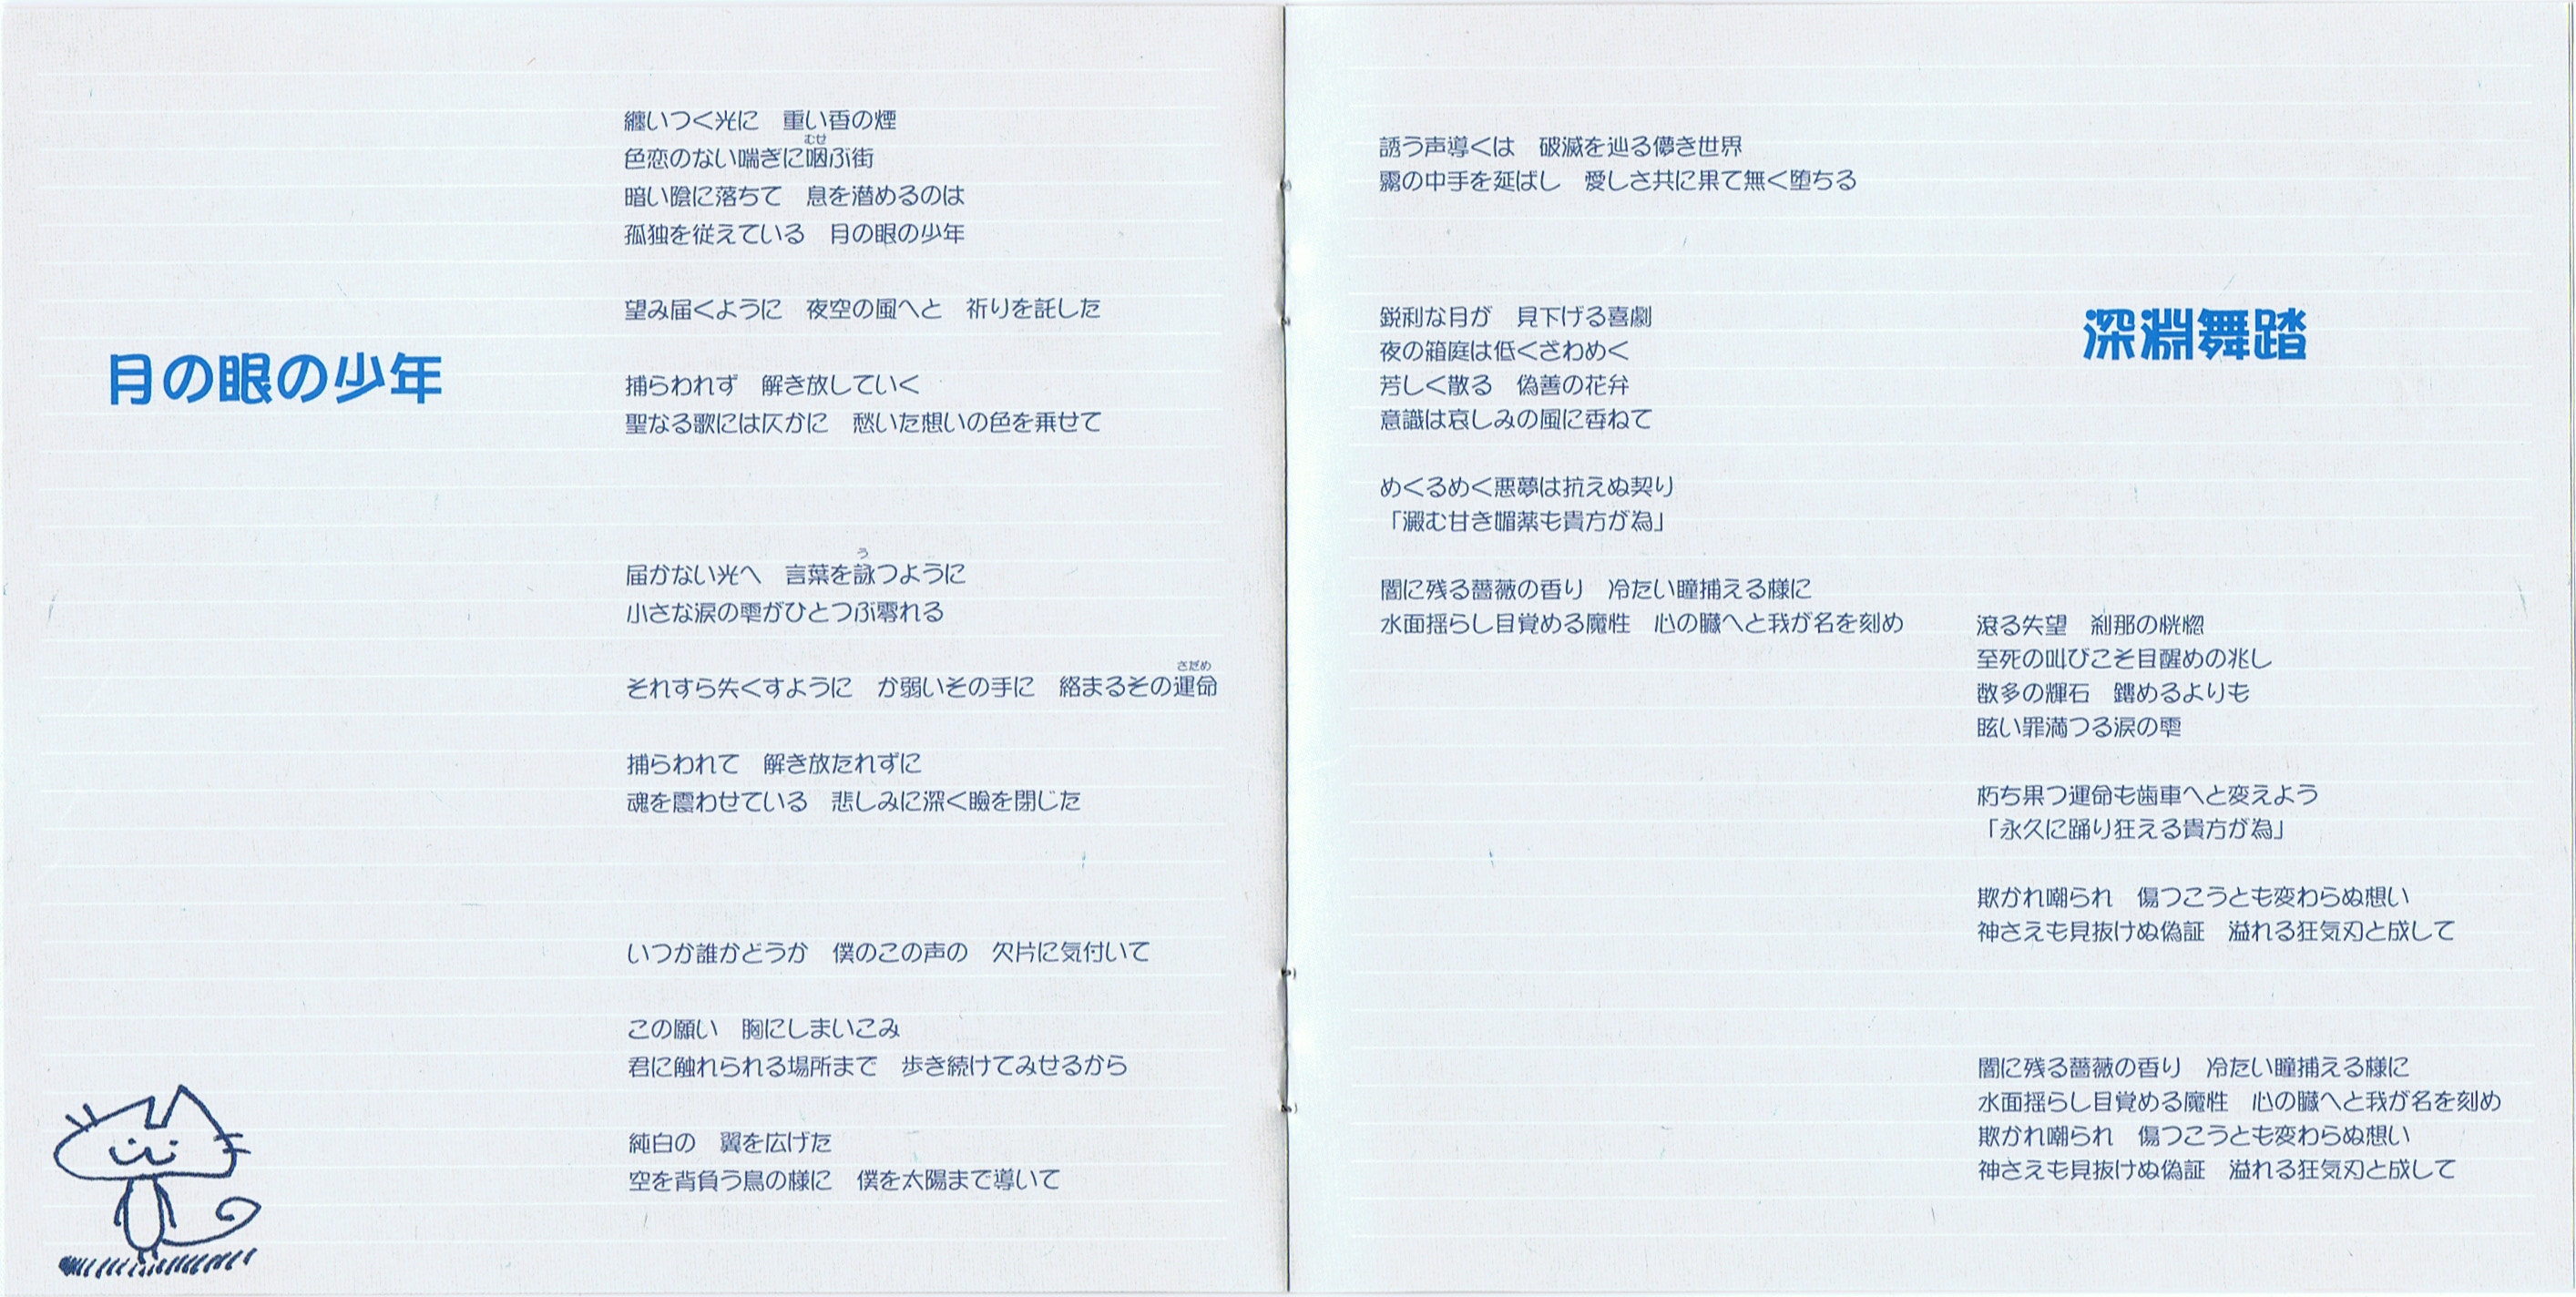 月の眼の少年
纏いつく光に　重い香の煙
色恋のない喘ぎに咽ぶ街
むせ
暗い陰に落ちて　息を潜めるのは
孤独を従えている　月の眼の少年
望み届くように　夜空の風へと　祈りを託した
捕らわれず　解き放していく
聖なる歌には仄かに　愁いた想いの色を乗せて
届かない光へ　言葉を詠つように
う
小さな涙の雫がひとつぶ零れる
それすら失くすように　か弱いその手に　絡まるその運命
さだめ
捕らわれて　解き放たれずに
魂を震わせている　悲しみに深く瞼を閉じた
いつか誰かどうか　僕のこの声の　欠片に気付いて
この願い　胸にしまいこみ
君に触れられる場所まで　歩き続けてみせるから
純白の　翼を広げた
空を背負う鳥の様に　僕を太陽まで導いて
深淵舞踏
誘う声導くは　破滅を辿る儚き世界
霧の中手を延ばし　愛しさ共に果て無く堕ちる
鋭利な月が　見下げる喜劇
夜の箱庭は低くざわめく
芳しく散る　偽善の花弁
意識は哀しみの風に委ねて
めくるめく悪夢は抗えぬ契り
「澱む甘き媚薬も貴方が為」
闇に残る薔薇の香り　冷たい瞳捕える様に
水面揺らし目覚める魔性　心の臓へと我が名を刻め
滾る失望　刹那の恍惚
至死の叫びこそ目醒めの兆し
数多の輝石　鏤めるよりも
眩い罪満つる涙の雫
朽ち果つ運命も歯車へと変えよう
「永久に踊り狂える貴方が為」
欺かれ嘲られ　傷つこうとも変わらぬ想い
神さえも見抜けぬ偽証　溢れる狂気刃と成して
闇に残る薔薇の香り　冷たい瞳捕える様に
水面揺らし目覚める魔性　心の臓へと我が名を刻め
欺かれ嘲られ　傷つこうとも変わらぬ想い
神さえも見抜けぬ偽証　溢れる狂気刃と成して